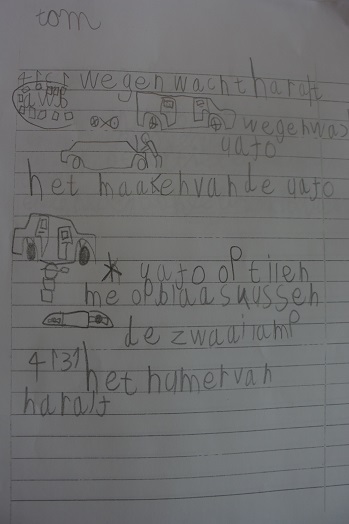 tom
wegenwacht haralt
wegenwach
yato
het maakenvande yato
yato op tilen
me opblaaskussen
de zwaailamp
4131 het numervan
haralt